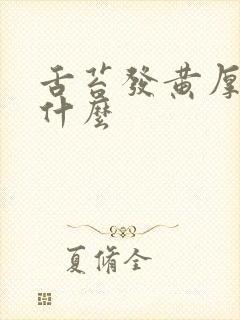 舌苔發黃厚
什麼
夏脩全